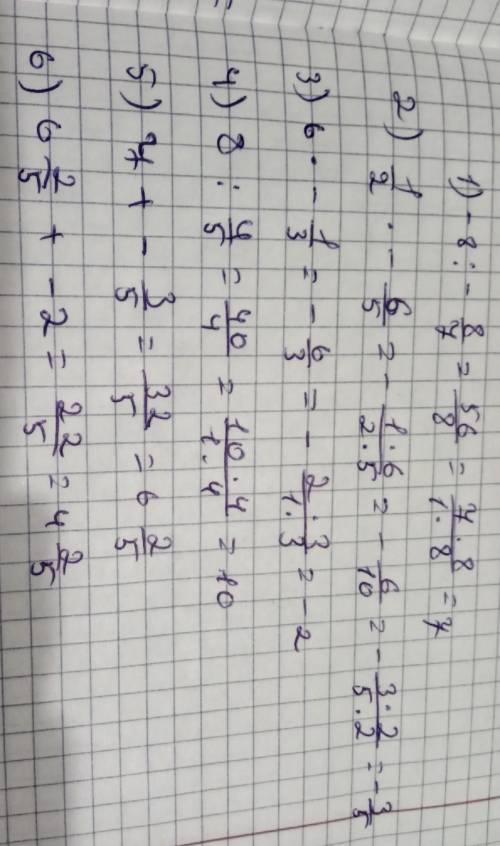 1) -8 : - 8/7 = 56/8 = 7·8/1·8 = 7
2) 1/2 · - 6/5 = - 1·6/2·5 = - 6/10 = - 3·2/5·2 = - 3/5
3) 6 · - 1/3 = - 6/3 = - 2·3/1·3 = - 2
4) 8 : 4/5 = 40/4 = 10·4/1·4 = 10
5) 7 + - 3/5 = 32/5 = 6 2/5
6) 6 2/5 + - 2 = 22/5 = 4 2/5